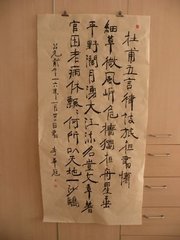 杜甫五言律詩旅夜書懷
細草微風岸危檣獨夜舟星垂
平野闊月湧大江流名豈文章著
官因老病休飄〻何所似天地一沙鷗